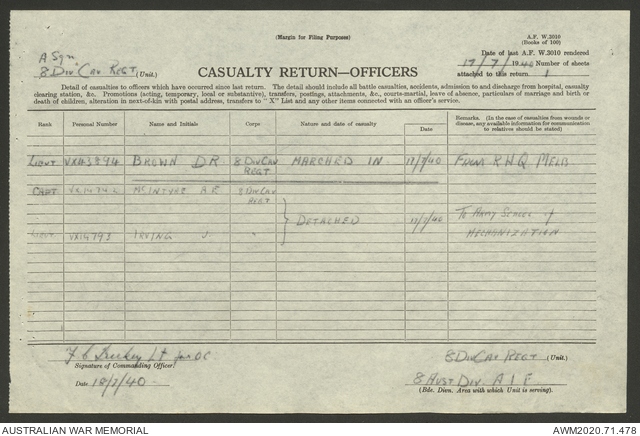 (Margin for Filing Purposes)
A.F. W.3010
(Books of 100)
A Sqn
8 Div Cav Regt (Unit.)
Date of last A.F. W.3010 rendered
17/7/1940 Number of sheets
attached to this return 1
CASUALTY RETURN—OFFICERS
Detail of casualties to officers which have occurred since last return. The detail should include all battle casualties, accidents, admission to and discharge from hospital, casualty
clearing station, &c. Promotions (acting, temporary, local or substantive), transfers, postings, attachments, &c., courts-martial, leave of absence, particulars of marriage and birth or
death of children, alteration in next-of-kin with postal address, transfers to "X" List and any other items connected with an officer's service.
Rank Personal Number Name and Initials Corps Nature and date of casualty Date Remarks. (In the case of casualties from wounds or disease, any available information for communication to relatives should be stated)
Lieut VX43894 BROWN DR 8 DIV CAV REGT MARCHED IN 17/7/40 FROM RHQ MELB
CAPT MCINTYRE A.E. 8 DIV CAV REGT
DETACHED 17/7/40 To Army School of
MECHANIZATION
LIEUT VX14793 IRVING J. "
Lt for OC.
Signature of Commanding Officer.
Date 18/7/40
8 DIV CAV REGT (Unit.)
8 AUST DIV A I F
(Bde. Divn. Area with which Unit is serving).
AUSTRALIAN WAR MEMORIAL
AWM2020.71.478